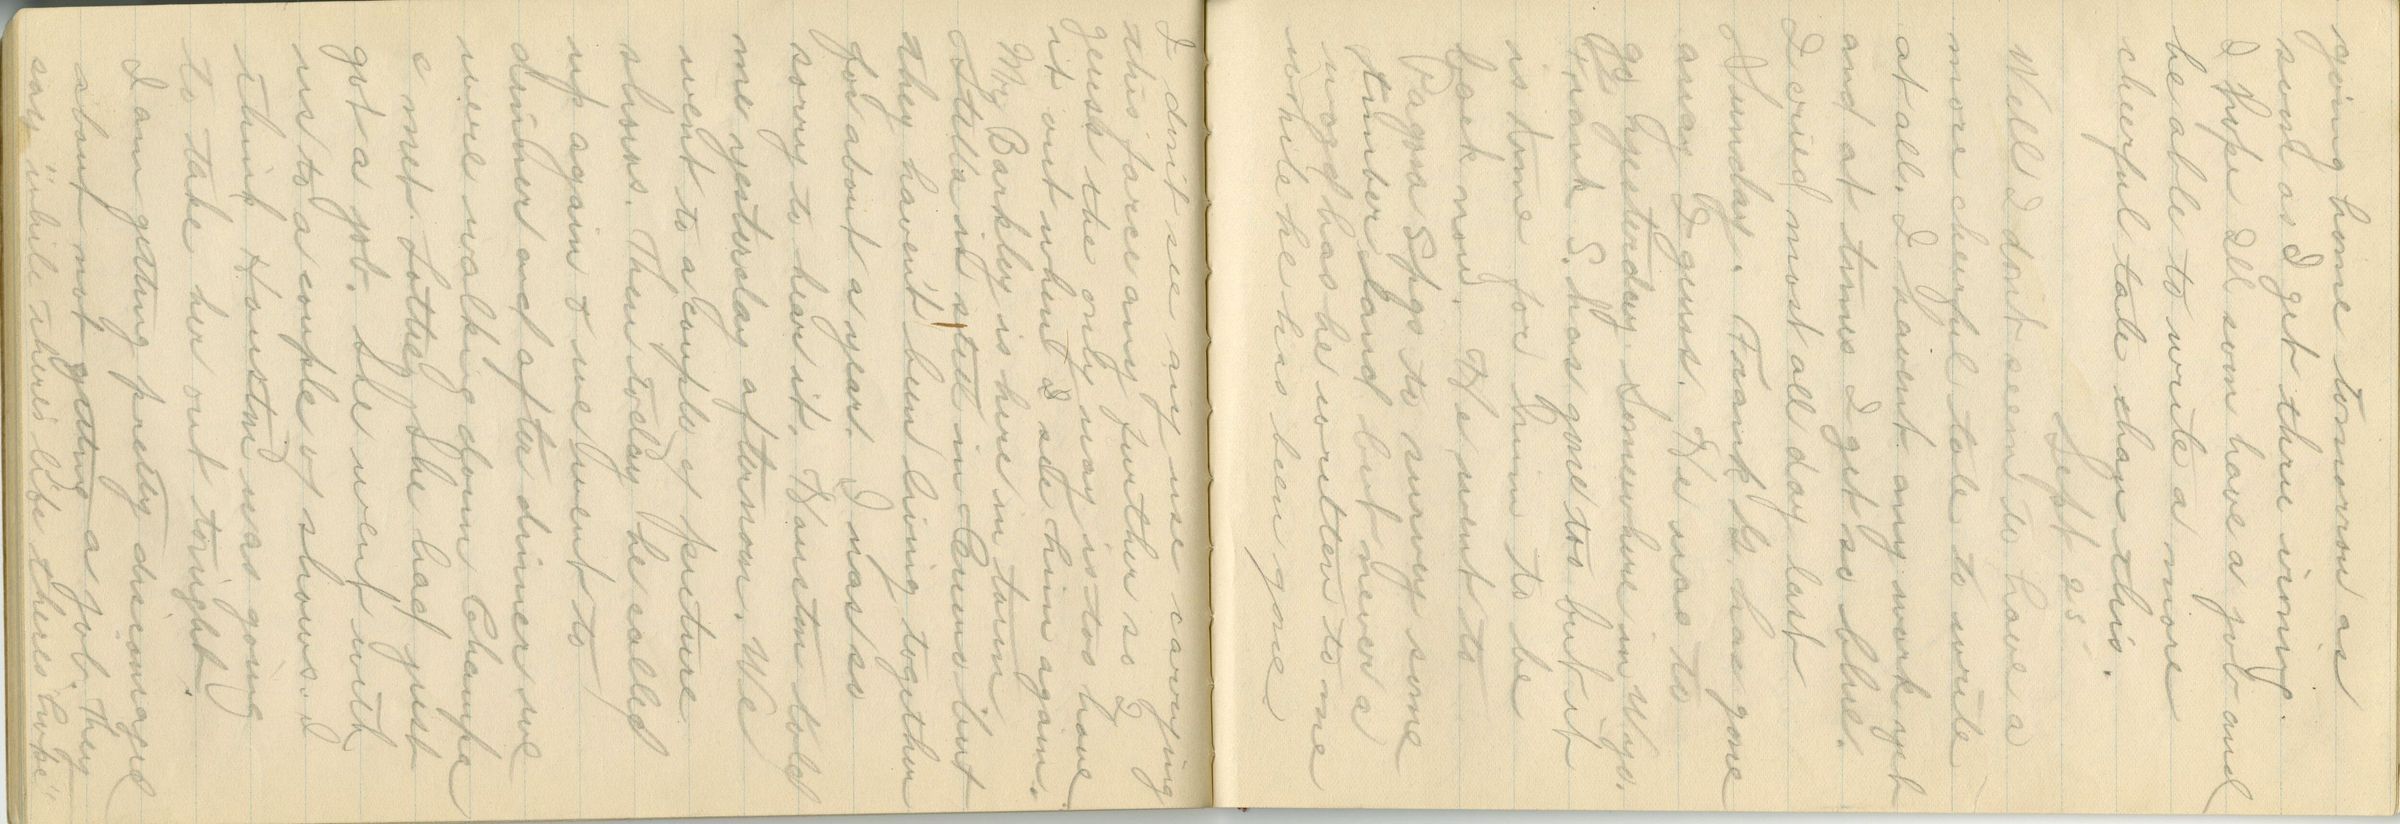 going home tomorrow as
soon as I get thru ironing.
I hope Ill soon have a job and
be able to write a more
cheerful tale than this.
Sept 25
Well I dont seem to have a
more cheerful tale to write
at all. I havent any work yet
and at times I get so blue.
I cried most all day last
Sunday. Frank B. has gone
away I guess. He was to
go yesterday. Somewhere in Wyo.
Frank S. has gone too but it
is to me for him to be
back now. He went to
Pagosa Spgs to survey some
timber land but never a
word has he written to me
while he has been gone
I don't see any use carrying
this farce any further so I
guess the only way is to have
it out when I see him again.
My Barkley is here in town
Stella is still in Camo but
they haven't been living together
for about a year. I was so
sorry to hear it. Houston told
me yesterday afternoon. We
went to a couple of picture
shows. Then today he called
up again & we went to
dinner and after dinner we
were walking down Champa
& met Lottie. She had just
got a job. She went with
us to a couple of shows. I
think Houston was going
to take her out tonight.
I am getting pretty discouraged
about not getting a job. They
say "while there's life there's hope"